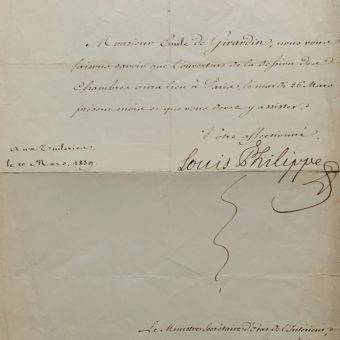 Monsieur Emile de Girardin, nous vous
faisons savoir que l'ouverture de la Session des
Chambres aura lieu à Paris, le mardi 26 Mars
présent mois et que vous devez y assister.
Votre affectionné
Louis Philippe
Aux Tuileries,
le 20 Mars, 1839.
Le Ministre Secrétaire d'Etat de l'Intérieur,